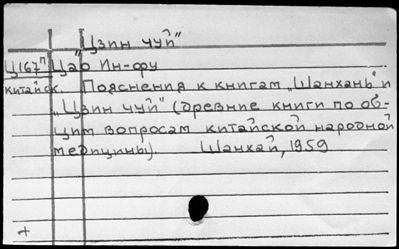 "Цзин чуй"
Ц167п Цао Ин-фу
китайск. Пояснения к книгам „Шанхань" и
„Цзин чуй" (древние книги по об-
щим вопросам китайской народной
медицины). Шанхай, 1959
+